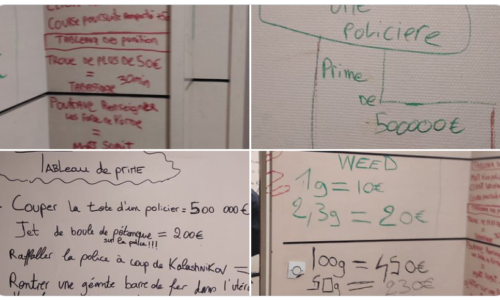 COURSE POURSUITE
TABLEAU DES POSITION
TROUE DE PLUS DE 50€
=
30min
POUKAVE RENSEIGNER
=
MORT SUBIT
UNE
POLICIERE
Prime
DE
500000€
TABLEAU de PRIME
Couper la tete d'un policier = 500 000€
Jet de boule de pétanque = 200€
sur la police!!!
Rafaller la police à coup de Kalashnikov =
Rentrer une géante barre de fer dans l'uté
WEED
1g = 10€
2,3g = 20€
100g = 450€
50g = 230€